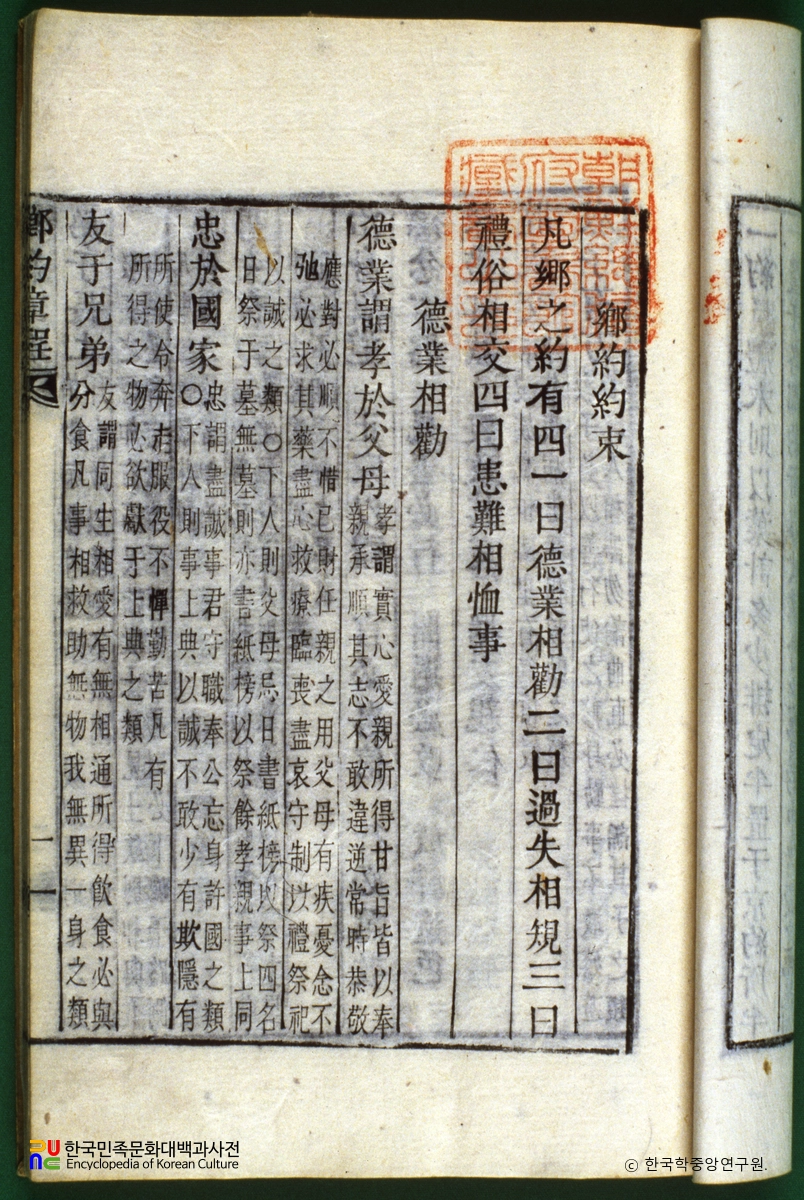 朝鮮總督
府圖書館
藏書之印
鄉約約束
凡鄉之約有四一曰德業相勸二曰過失相規三曰
禮俗相交四曰患難相恤事
德業相勸
德業謂孝於父母
孝謂實心愛親所得甘旨皆以奉
親承順其志不敢違逆常時恭敬
應對必順不惜己財任親之用父母有疾憂念不
弛必求其藥盡心救療臨喪盡哀守制以禮祭祀
以誠之類○下人則父母忌日書紙榜以祭四名
日祭于墓無墓則亦書紙榜以祭餘孝親事上同
忠於國家
忠謂盡誠事君守職奉公忘身許國之類
○下人則事上典以誠不敢少有欺隱有
所使令奔走服役不憚勤苦凡有
所得之物必欲獻于上典之類
友于兄弟
友謂同生相愛有無相通所得飲食必與
分食凡事相救助無物我無異一身之類
鄉約章程
한국민족문화대백과사전
Encyclopedia of Korean Culture
ⓒ 한국학중앙연구원.